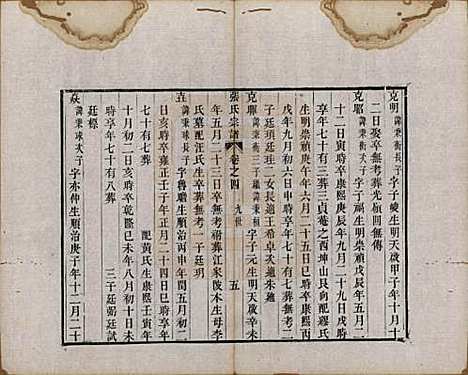 克明 諱秉衡長子 字子夔生明天啟甲子年十月十
二日娶卒無考葬先楨園無傳
克耶 諱秉衡次子 字子嗣生明崇禎庚辰年五月二
十二日寅時卒康熙庚辰年九月二十九日戌時
享年七十有七葬三貞菴之酉坤山艮向配繆氏
生明崇禎庚午年六月二十五日巳時卒康熙丙
戌年九月初六日申時享年七十有七葬無考二
子廷頊廷 二女長適王希卓次適朱遴
克昭 諱秉衡三子 繼諱秉極 字子元生明天啟辛未
張氏宗譜 卷之四 九世 五
年五月二十三日卒無考祔葬江家 本生母李
氏墓配汪氏生卒無考一子廷玥
壵 諱秉球長子 字魯瞻生順治丙申年閏五月初二
日亥時卒雍正壬子年正月二十四日巳時享年
七十有七葬 配黃氏生康熙壬寅年
十月初二日亥時卒乾隆己未年五月初二日寅
時享年七十有八葬 三子廷試
廷標
焱 諱秉球次子 字亦仲生順治庚子年十二月二十